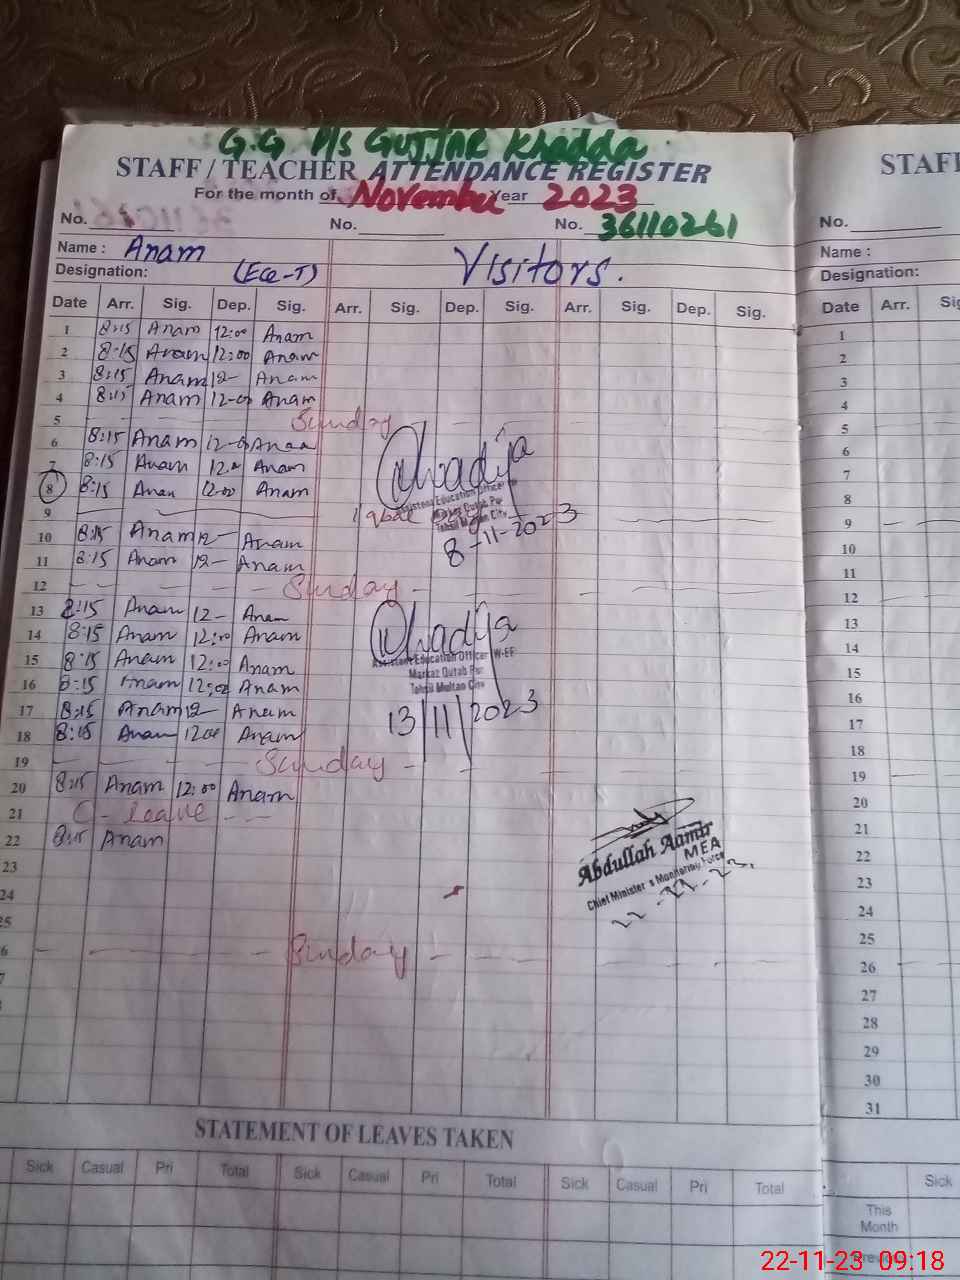 G.G P/S GUJJAR Khadda
STAFF / TEACHER ATTENDANCE REGISTER
For the month of November Year 2023
No. No. No. 36110261
Name : Anam Visitors.
Designation: (Ece-T)
Date Arr. Sig. Dep. Sig. Arr. Sig. Dep. Sig. Arr. Sig. Dep. Sig.
1 8:15 Anam 12:00 Anam
2 8:15 Anam 12:00 Anam
3 8:15 Anam 12- Anam
4 8:15 Anam 12-00 Anam
5 Sunday
6 8:15 Anam 12-00 Anam
7 8:15 Anam 12.00 Anam
8 8:15 Anam 12-00 Anam
Khadija
Assistent Education Officer
Markaz Qutab Pur
Tehsil Multan City
8-11-2023
9 Iqbal day
10 8:15 Anam 12- Anam
11 8:15 Anam 12- Anam
12 Sunday
13 8:15 Anam 12- Anam
14 8:15 Anam 12:00 Anam
15 8:15 Anam 12:00 Anam
16 8:15 Anam 12:00 Anam
17 8:15 Anam 12- Anam
18 8:15 Anam 1200 Anam
Khadija
Assistent Education Officer W-EE
Markaz Qutab Pur
Tehsil Multan City
13/11/2023
19 Sunday
20 8:15 Anam 12:00 Anam
21 C-leave
22 8:15 Anam
Abdullah Aamir
MEA
Chief Minister's Monitoring Force
23
24
25
26 Sunday
STATEMENT OF LEAVES TAKEN
Sick Casual Pri Total Sick Casual Pri Total Sick Casual Pri Total
STAFF
No.
Name :
Designation:
Date Arr. Sig
1
2
3
4
5
6
7
8
9
10
11
12
13
14
15
16
17
18
19
20
21
22
23
24
25
26
27
28
29
30
31
Sick
This
Month
22-11-23 09:18